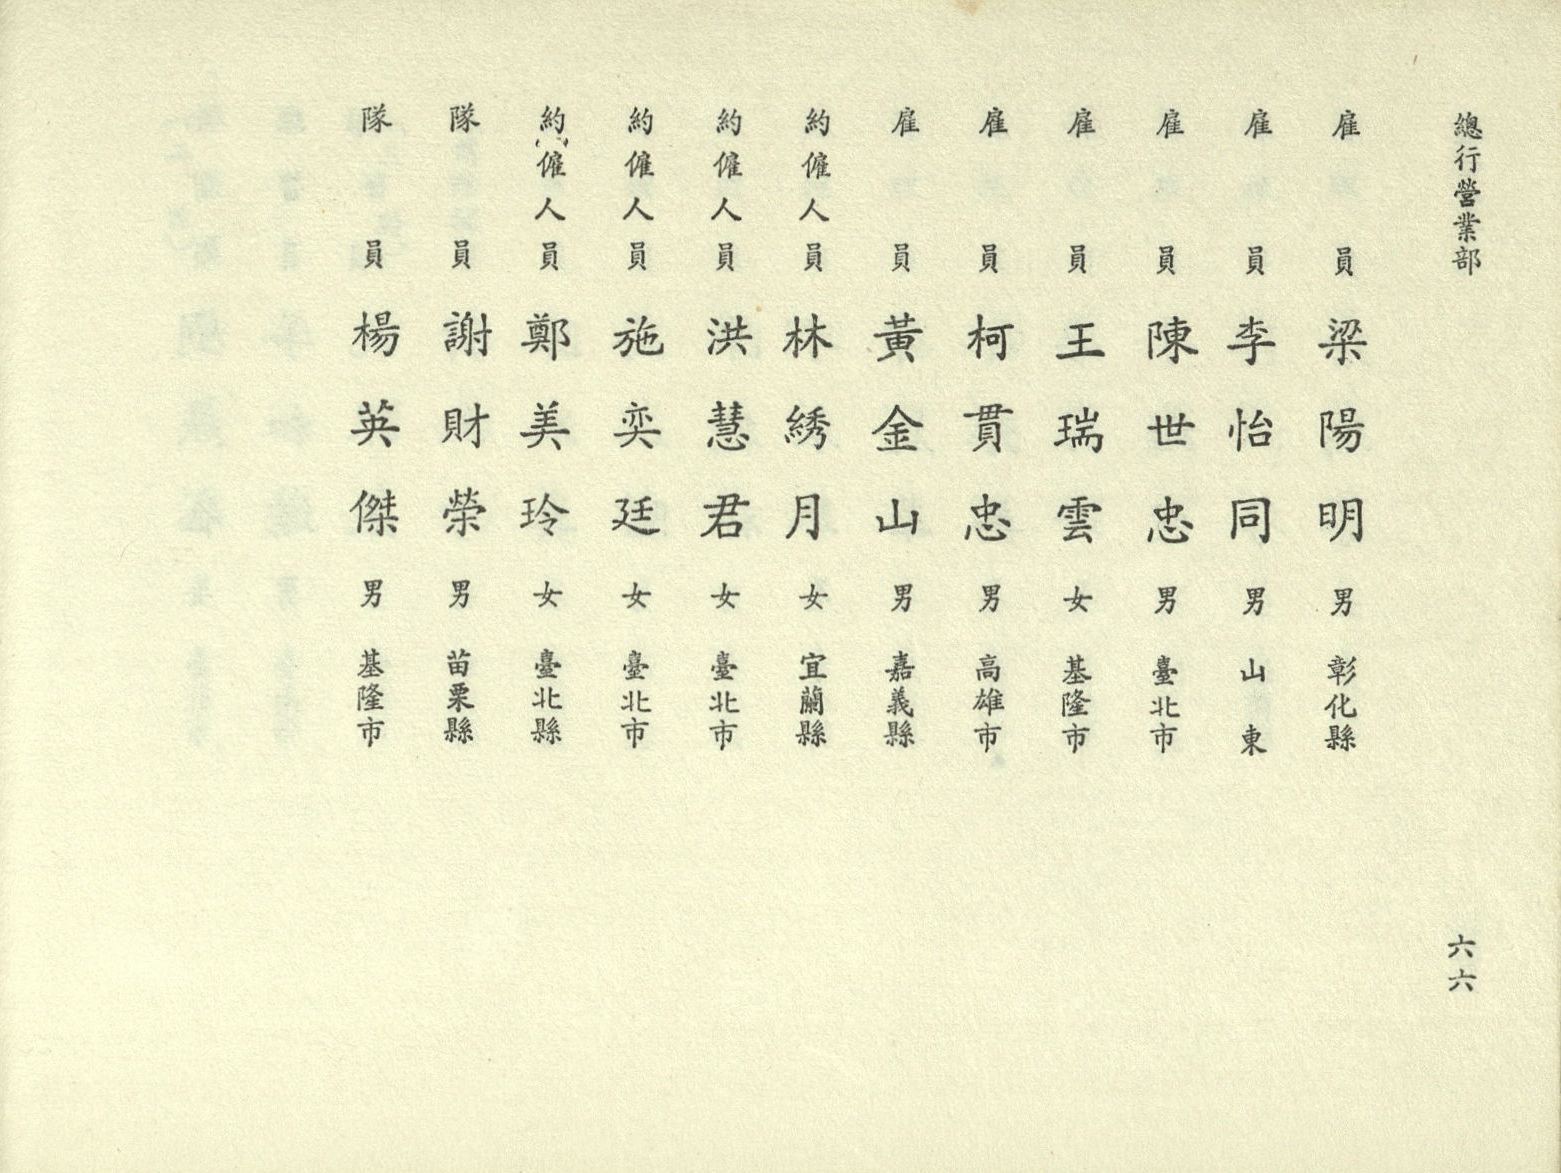 總行營業部
六六
雇員 梁陽明 男 彰化縣
雇員 李怡同 男 山東
雇員 陳世忠 男 臺北市
雇員 王瑞雲 女 基隆市
雇員 柯貫忠 男 高雄市
雇員 黃金山 男 嘉義縣
約僱人員 林綉月 女 宜蘭縣
約僱人員 洪慧君 女 臺北市
約僱人員 施奕廷 女 臺北市
約僱人員 鄭美玲 女 臺北縣
隊員 謝財榮 男 苗栗縣
隊員 楊英傑 男 基隆市